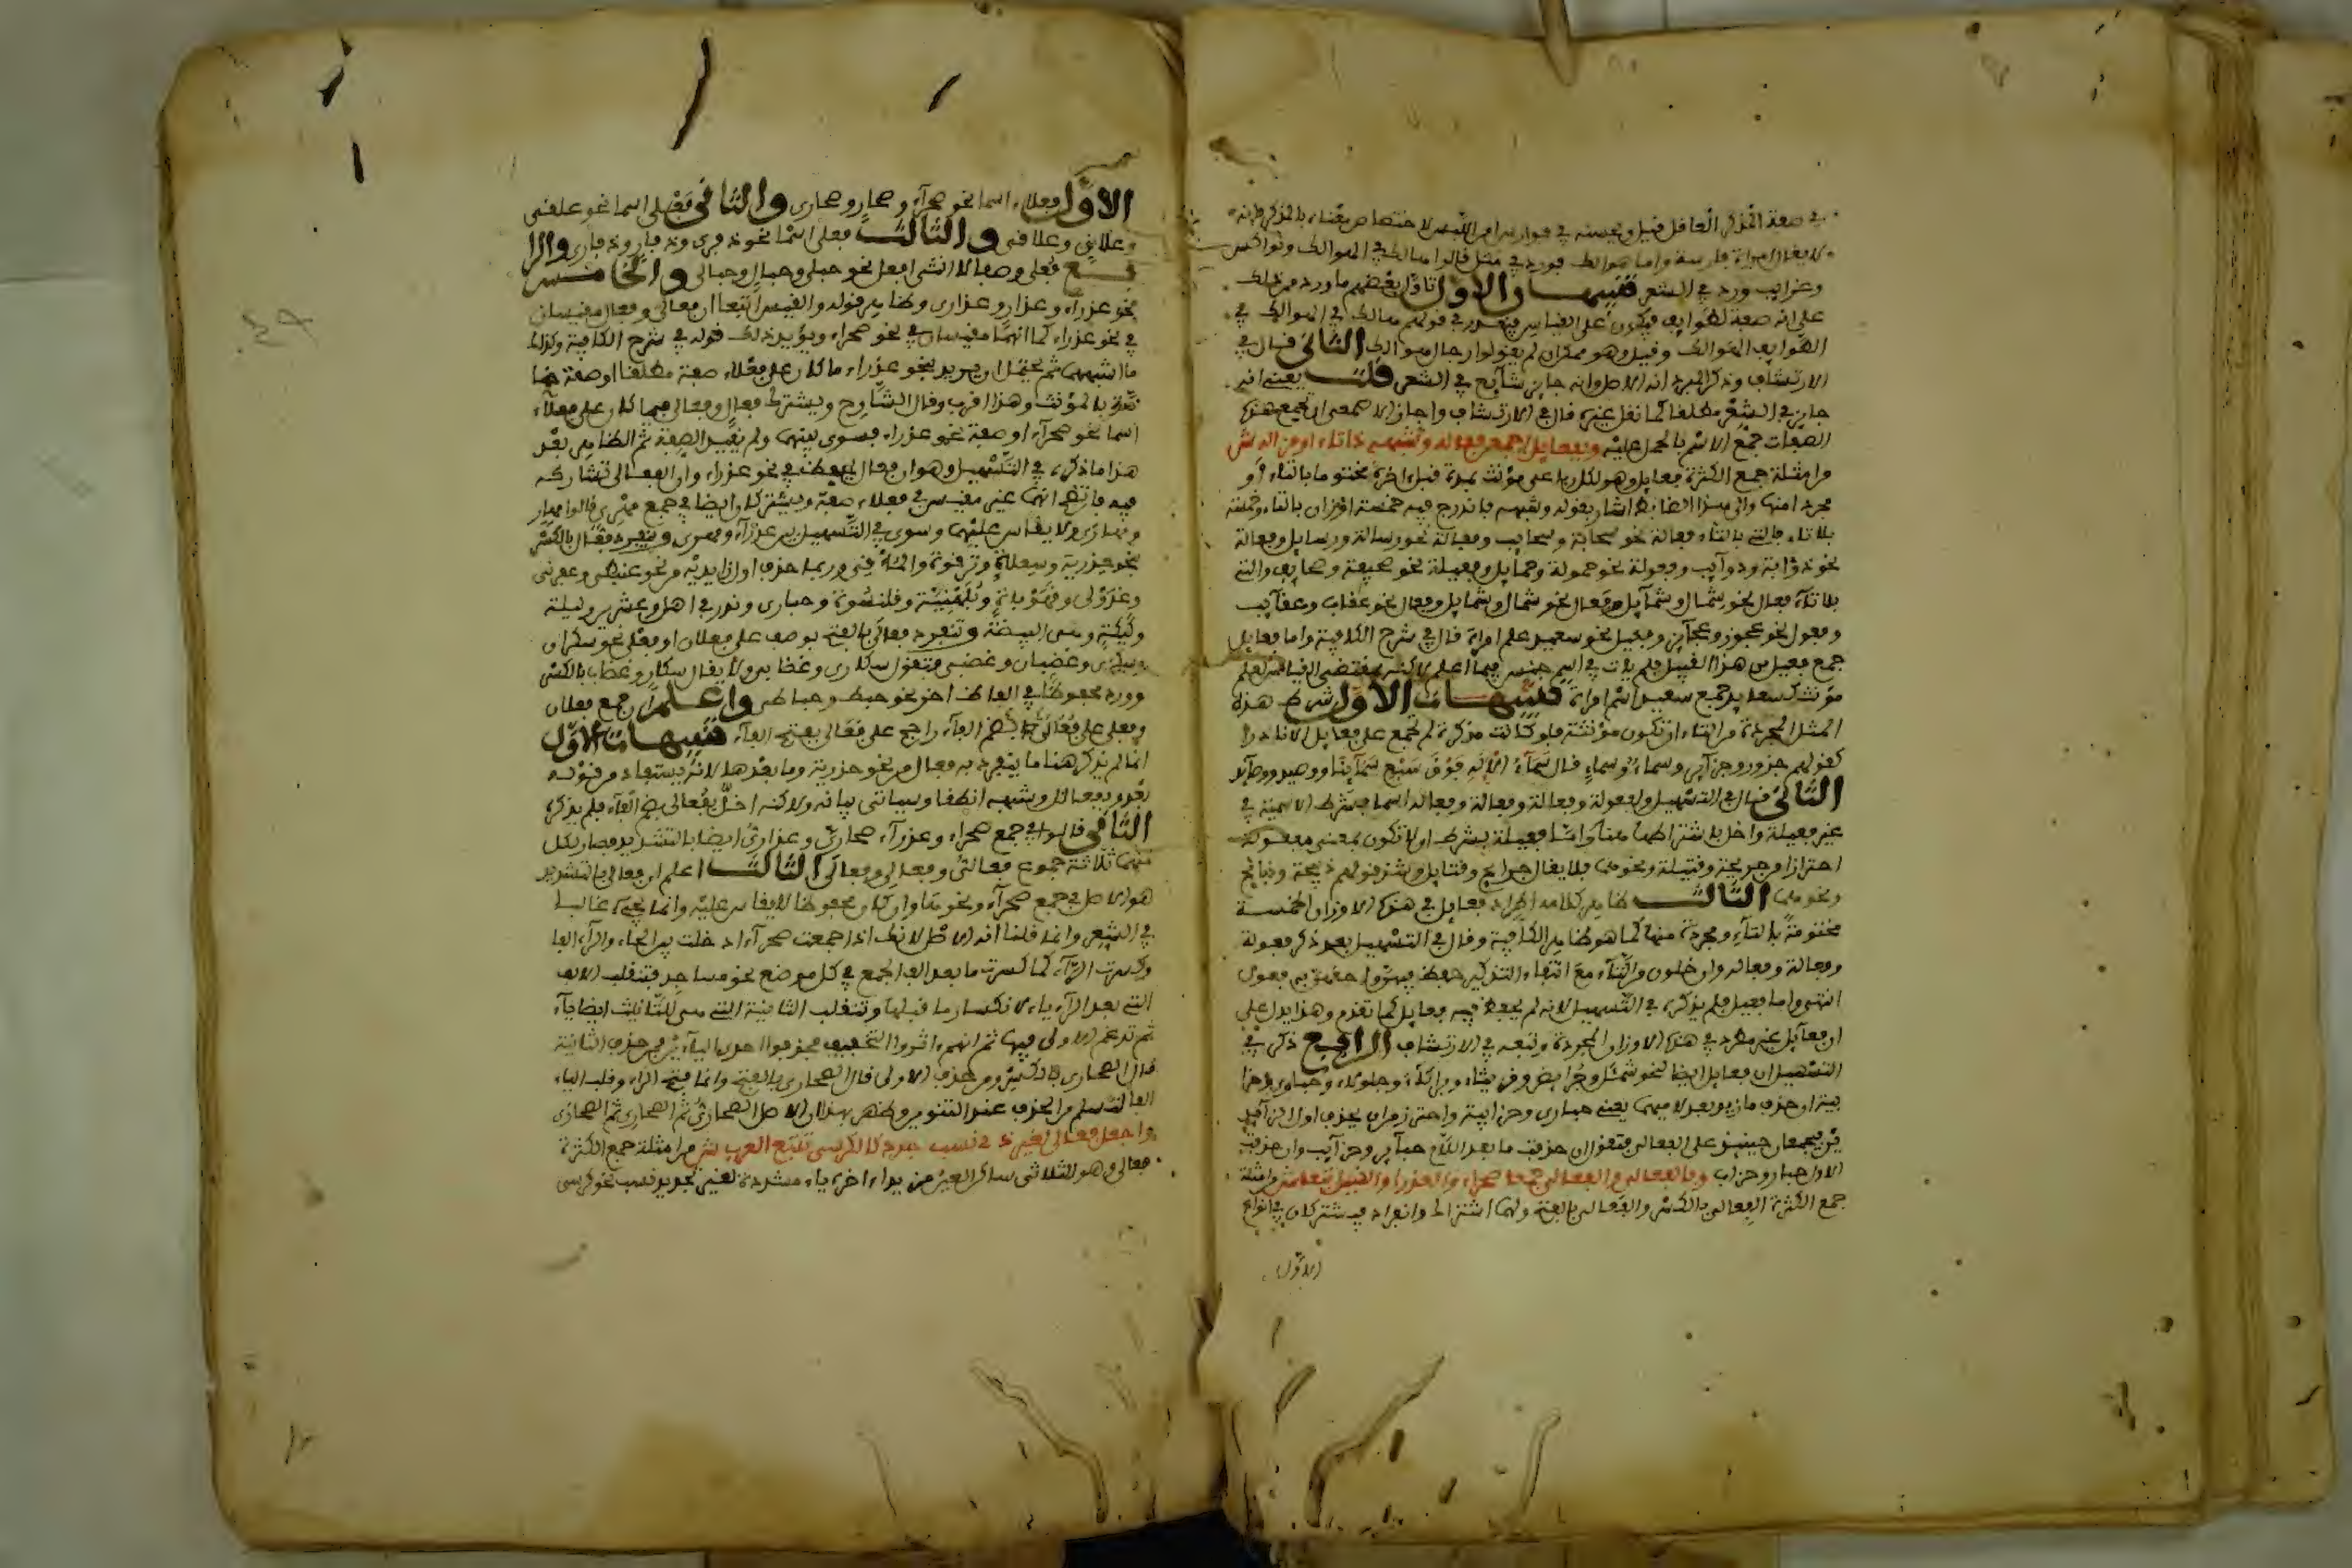 في صفة المذكر العاقل قيل وحسنه في فوارس امن اللبس لاختصاص معناه بالمذكر فإنه
لا يقال امراة فارسة واما هوالك فورد في مثل قالوا هالك في الهوالك ونواكس
وغوايب ورد في الشعر تنبيهان الاول تاول بعضهم ما ورد من ذلك
على انه صفة لطوايف فيكون على القياس فيقدر في قولهم هالك في الهوالك في
الطوايف الهوالك وقيل وهو ممكن ان لم يقولوا رجال هوالك الثاني قال في
الارتشاف وذكر المبرد انه الاصل وانه جايز شايع في الشعر قلت يعني انه
جايز في الشعر مطلقا كما نقل غيره قال في الارتشاف واجاز الاصمعي ان تجمع هذه
الصفات جمع الاسم بالحمل عليه وبفعايل اجمعن فعاله وشبهه ذا تاء او مزاله ش
من امثلة جمع الكثرة فعايل وهو لكل رباعي مؤنث بمدة قبل اخره مختوما بالتاء او
مجردا منها والى هذا الضابط اشار بقوله وشبهه فاندرج فيه خمسة اوزان بالتاء وخمسة
بلا تاء فالتي بالتاء فعالة نحو سحابة وسحايب وفعالة نحو رسالة ورسايل وفعالة
نحو ذؤابة وذوآيب وفعولة نحو حمولة وحمايل وفعيلة نحو صحيفة وصحايف والتي
بلا تاء فعال نحو شمال وشمآيل وفعال نحو شمال وشمايل وفعال نحو عقاب وعقآيب
وفعول نحو عجوز وعجآيز وفعيل نحو سعيد علم امراة قال في شرح الكافية واما فعايل
جمع فعيل من هذا القبيل فلم يات في اسم جنس فيما اعلم لاكنه بمقتضى القياس لعلم
مؤنث كسعايد جمع سعيد اسم امراة تنبيهات الاول شرط هذه
المثل المجردة من التاء ان تكون مؤنثة فلو كانت مذكرة لم تجمع على فعايل الا نادرا
كقولهم جزور وجزآير وسماء وسماءٍ قال سماء الاله فوق سبع سمآينا ووصيد ووصآيد
الثاني قال في التسهيل ولفعولة وفعالة وفعالة وفعالة اسما فشرط الاسمية في
غير فعيلة واخل باشتراطها هنا واما فعيلة بشرط ان لا تكون بمعنى مفعولة
احترازا من جريحة وقتيلة ونحوهما فلا يقال جرايح وقتايل وشذ قولهم ذبيحة وذبايح
ونحوهما الثالث ظاهر كلامه اطراد فعايل في هذه الاوزان الخمسة
مختومة بالتآء ومجردة منها كما هو ظاهر الكافية وقال في التسهيل بعد ذكر فعولة
وفعالة وفعاله وان خلون من التآء مع انتفاء التذكير حفظ فيهن واحقهن به فعول
انتهى واما فعيل فلم يذكره في التسهيل لانه لم يحفظ فيه فعايل كما تقدم وهذا يدل على
ان فعآيل غير مطرد في هذه الاوزان المجردة وتبعه في الارتشاف الرابع ذكر في
التسهيل ان فعايل ايضا لنحو شمئل وجرايض وقريثاء وبراكآء وجلولاء وحبارى وحزا
بية ان حذف ما زيد بعد لاميهما يعني حبارى وحزابية واحترز من ان يحذف اول الزآيد
ين فيجمعان حينئذ على الفعالى فتقول ان حذفت ما بعد اللام حبآير وحزآيب وان حذفت
الاول حبار وحزاب وبالفعالي والفعالى جمعا صحراء والعذراء والقيس اتبعا ش من امثلة
جمع الكثرة الفعالي بالكسر والفعالى بالفتح ولهما اشتراك وانفراد فيشتركان في انواع
الاول
الاول فعلاء اسما نحو صحرآء وصحارٍ وصحارى والثاني فعلى اسما نحو علقى
وعلاقٍ وعلاقى والثالث فعلى اسما نحو ذفرى وذفارٍ وذفارى والرا
بع فعلى وصفا لا انثى افعل نحو حبلى وحبالٍ وحبالى والخامس
نحو عذراء وعذارٍ وعذارى وظاهر قوله والقيس اتبعا ان فعالي وفعالى مقيسان
في نحو عذراء كما انهما مقيسان في نحو صحراء ويؤيد ذلك قوله في شرح الكافية وكذلك
ما اشبههما ثم يحتمل ان يريد بنحو عذراء ما كان على فعلاء صفة مطلقا او صفة خا
صة بالمؤنث وهذا اقرب وقال الشارح ويشترك فعالٍ وفعالى فيما كان على فعلآء
اسما نحو صحرآء او صفة نحو عذراء فسوى بينهما ولم يقيد الصفة ثم الظاهر بعد
هذا ما ذكره في التسهيل وهو ان فعال يحفظ في نحو عذراء وان الفعالى تشاركه
فيه فاتضح انهما غير مقيسين في فعلاء صفة ويشتركان ايضا في جمع مهري قالوا مهارٍ
ومهارى ولا يقاس عليهما وسوى في التسهيل بين عذرآء ومهرى وينفرد فعال بالكسر
بنحو حذرية وسعلاة وترقوة والماقي وربما حذف اول زايديه من نحو عفرنى
وعدولى وقهوباة وبلهنية وقلنسوة وحبارى وندر في اهل وعشرين وليلة
وكيكة وهي البيضة وتنفرد فعالى بالفتح بوصف على فعلان او فعلى نحو سكران
وسكرى وغضبان وغضبى فتقول سكارى وغضابى ولا يقال سكارٍ وغضاب بالكسر
وورد محفوظا في الفاظ اخر نحو حبط وحباطى واعلم ان جمع فعلان
وفعلى على فعالى بضم الفآء راجح على فعالى بفتح الفآء تنبيهات الاول
انما لم يذكر هنا ما ينفرد به فعال من نحو حذرية وما بعدها لانه يستفاد من قوله
بعد وبفعالل وشبهه انطقا وسياتي بيانه ولاكنه اخل بفعالى بضم الفآء فلم يذكره
الثاني قالوا في جمع صحراء وعذرآء صحاريّ وعذاريّ ايضا بالتشديد فصار لكل
منهما ثلاثة جموع فعاليّ وفعالي وفعالى الثالث اعلم ان فعالي بالتشديد
هو الاصل في جمع صحرآء ونحوها وان كان محفوظا لا يقاس عليه وانما يجيء غالبا
في الشعر وانما قلنا انه الاصل لانك اذا جمعت صحرآء ادخلت بين الحاء والرآء الفا
وكسرت الرآء كما كسرت ما بعد الف الجمع في كل موضع نحو مساجد فتنقلب الالف
التي بعد الرآء ياء لانكسار ما قبلها وتنقلب الثانية التي هي للتانيث ايضا يآء
ثم تدغم الاولى فيها ثم انهم اثروا التخفيف فحذفوا احدى اليآءين فمن حذف الثانية
قال الصحاري بالكسر ومن حذف الاولى قال الصحارى بالفتح وانما فتح الراء وقلب الياء
الفا لتسلم من الحذف عند التنوين وظهر بهذا ان الاصل الصحاريّ ثم الصحاري ثم الصحارى
واجعل فعاليّ لغير ذي نسب جدد كالكرسي تتبع العرب ش من امثلة جمع الكثرة
فعالي وهو لثلاثي ساكن العين مزيد اخره ياء مشددة لغير تجديد نسب نحو كرسي